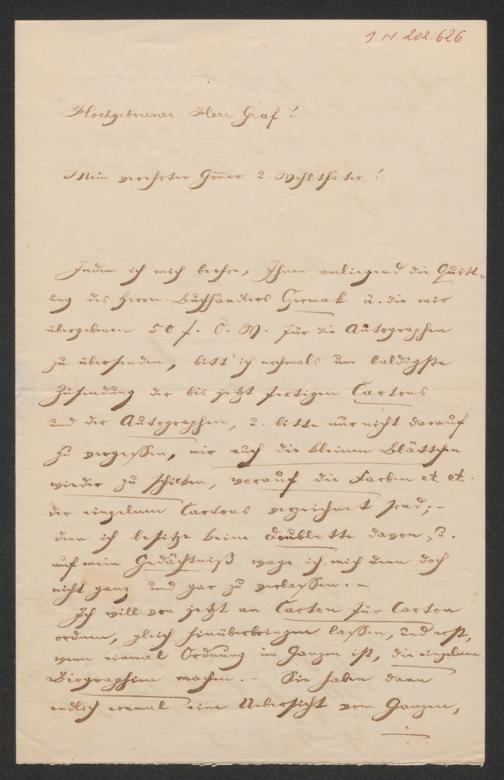 I. N. 202.626
Hochgeborener Herr Graf!
Mein verehrter Gönner u. Wohlthäter!
Indem ich mich beehre, Ihnen anliegend die Quitt-
ung des Herrn Buchhändlers Germak u. die mir
übergebenen 50 f. C. M. für die Autographen
zu übersenden, bitt' ich nochmals um baldigste
Zusendung der bis jetzt fertigen Cartons
und der Autographen, u. bitte nur nicht darauf
zu vergessen, mir auch die kleinen Blättchen
wieder zu schicken, worauf die Farben etc. etc.
der einzelnen Cartons verzeichnet sind; –
denn ich besitze keine Doublette davon, u.
auf mein Gedächtniß wage ich mich denn doch
nicht ganz und gar zu verlassen. –
Ich will von jetzt an Carton für Carton
ordnen, gleich hinüberbringen lassen, und erst,
wenn einmal Ordnung im Ganzen ist, die einzelnen
Biographien machen. – Sie haben dann
endlich einmal eine Uebersicht vom Ganzen,